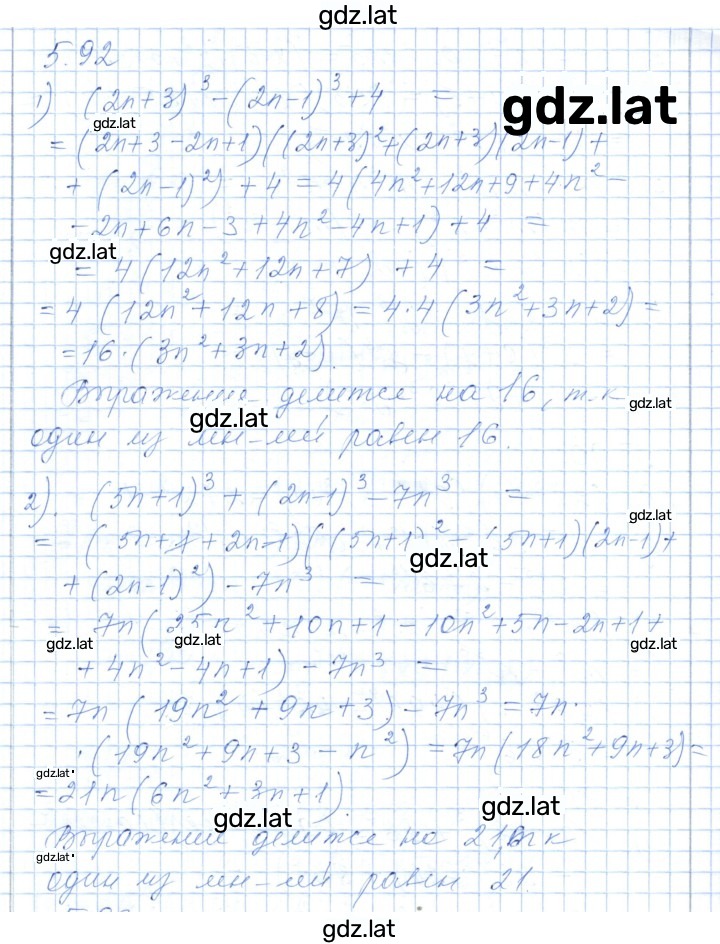 gdz.lat
5.92
1) (2n+3)³-(2n-1)³+4 =
gdz.lat
gdz.lat
= (2n+3-2n+1)((2n+3)²+(2n+3)(2n-1)+
+(2n-1)²)+4=4(4n²+12n+9+4n²-
-2n+6n-3+4n²-4n+1)+4 =
gdz.lat
= 4(12n²+12n+7)+4 =
=4(12n²+12n+8)=4·4(3n²+3n+2)=
=16·(3n²+3n+2).
Выражение делится на 16, т.к
gdz.lat
gdz.lat
один из мн-лей равен 16.
2). (5n+1)³+(2n-1)³-7n³ =
gdz.lat
= (5n+1+2n-1)((5n+1)²-(5n+1)(2n-1)+
gdz.lat
+(2n-1)²)-7n³ =
= 7n(25n²+10n+1-10n²+5n-2n+1+
gdz.lat
gdz.lat
gdz.lat
+4n²-4n+1)-7n³ =
=7n(19n²+9n+3)-7n³=7n·
·(19n²+9n+3-n²)=7n(18n²+9n+3)=
gdz.lat
=21n(6n²+3n+1).
gdz.lat
gdz.lat
Выражение делится на 21, т к
gdz.lat
один из мн-лей равен 21.
gdz.lat